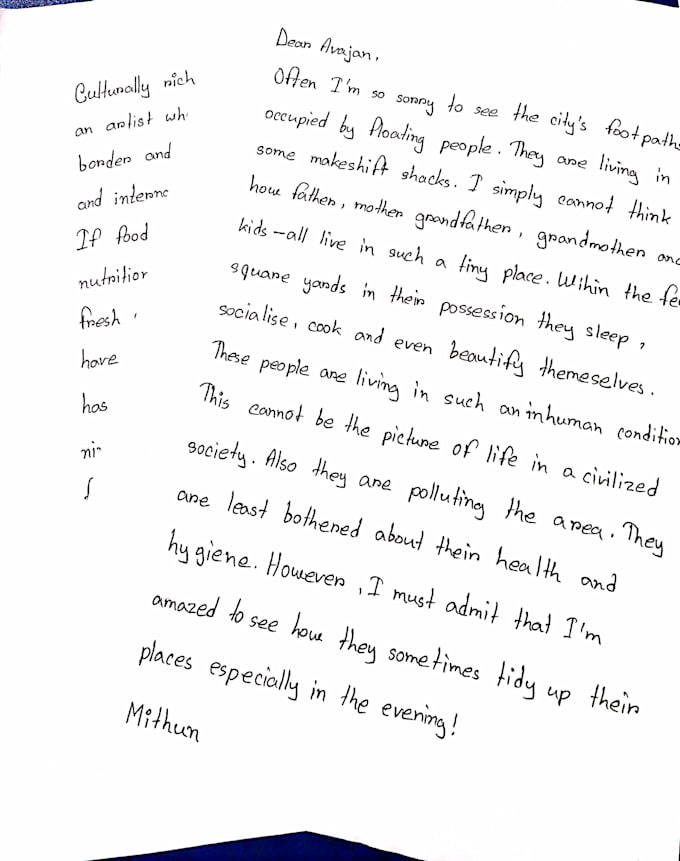 Culturally rich
an artist wh
border and
and interne
If food
nutrition
fresh
have
has
Dear Avajan,
Often I'm so sorry to see the city's footpaths
occupied by floating people. They are living in
some makeshift shacks. I simply cannot think
how father, mother grandfather, grandmother and
kids-all live in such a tiny place. Wihin the few
square yards in their possession they sleep,
socialise, cook and even beautify themeselves.
These people are living in such an inhuman condition
This cannot be the picture of life in a civilized
society. Also they are polluting the area. They
are least bothered about their health and
hygiene. However, I must admit that I'm
amazed to see how they sometimes tidy up their
places especially in the evening!
Mithun